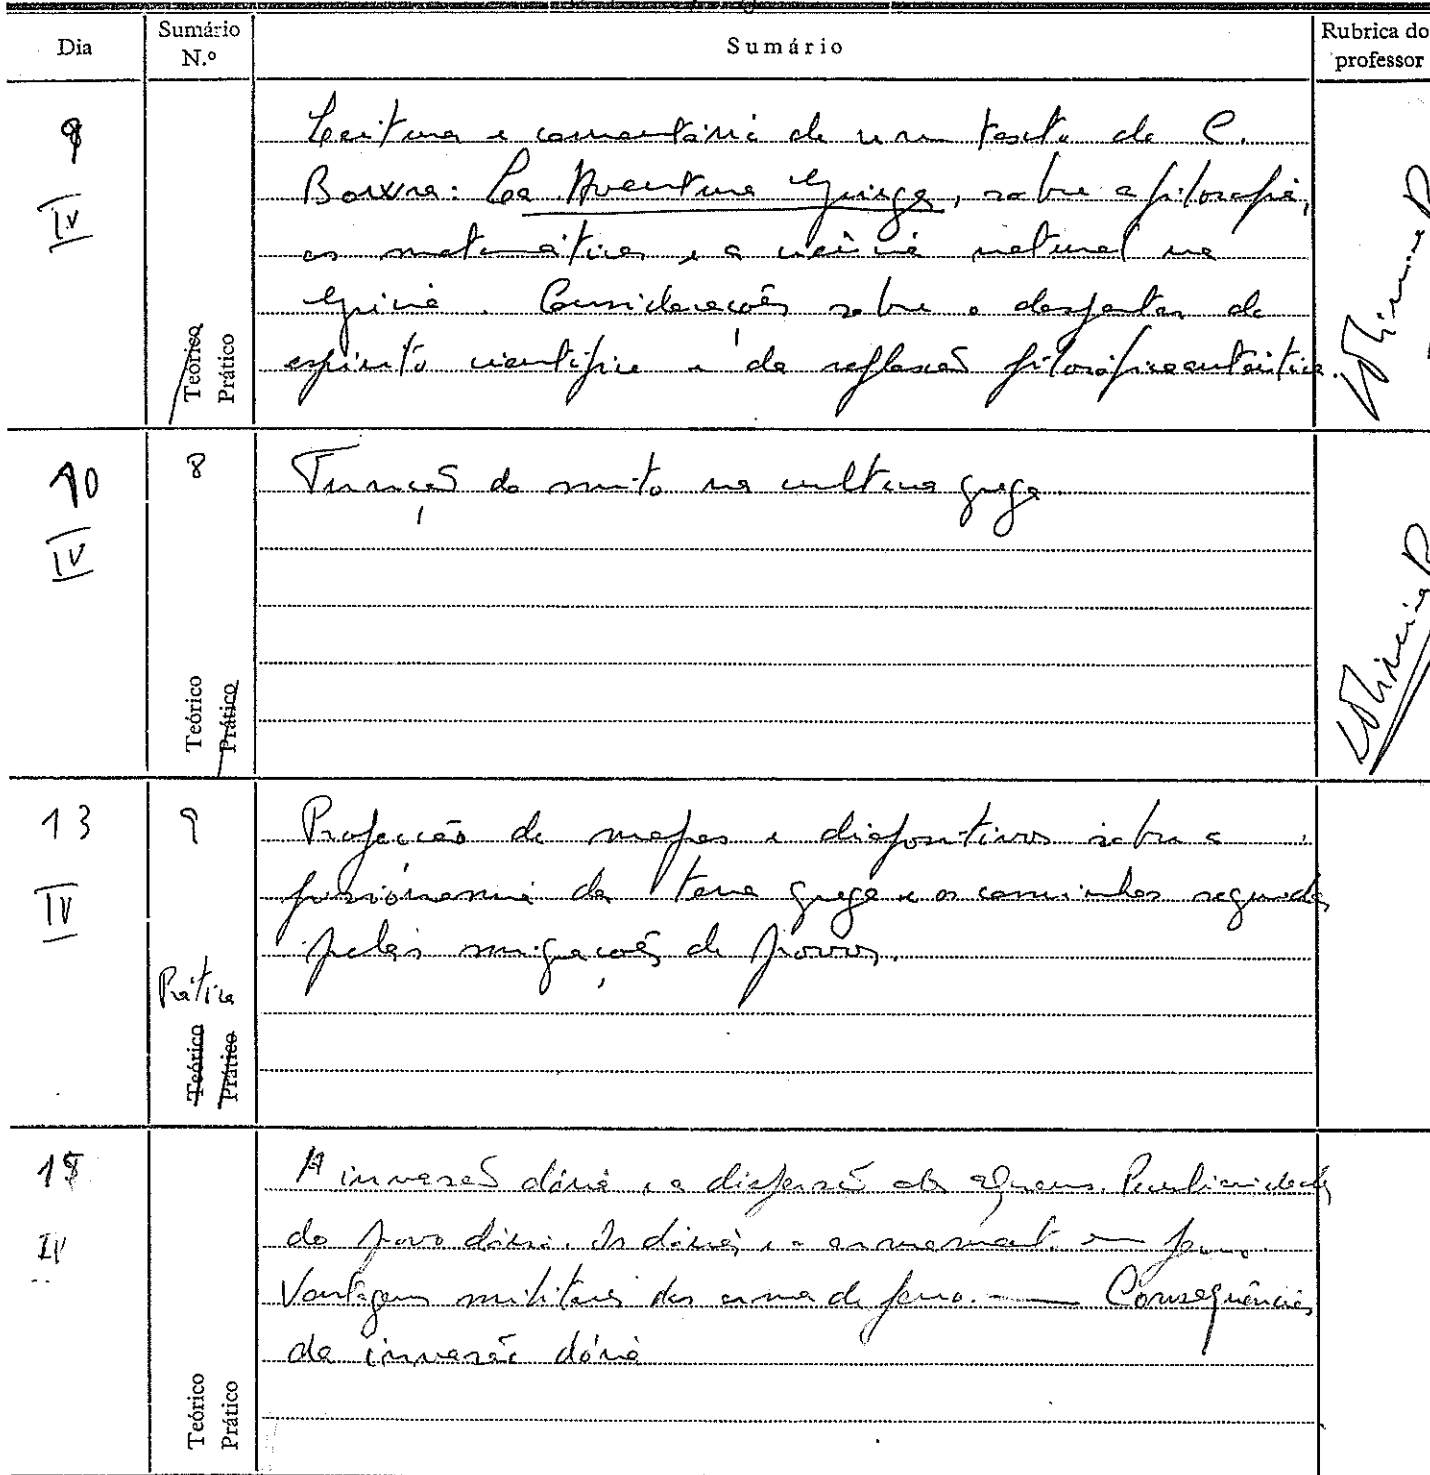 Dia
Sumário N.º
Sumário
Rubrica do professor
9
IV
Teórico
Prático
Leitura e comentário de um texto de C.
Bowra: La Aventura Griega, sobre a filosofia,
as matemáticas, e a ciência natural na
Grécia. Considerações sobre o despertar do
espírito científico e da reflexão filosófica autêntica.
10
IV
8
Teórico
Prático
Função do mito na cultura grega.
13
IV
9
Prática
Teórico
Prático
Projecção de mapas e diapositivos sobre a
fisionomia da terra grega e os caminhos seguidos
pelas migrações de povos.
IV
Teórico
Prático
A invasão dória e a dispersão dos aqueus. Peculiaridades
do povo dório. Os dórios e o armamento em ferro.
Vantagens militares das armas de ferro. — Consequências
da invasão dória